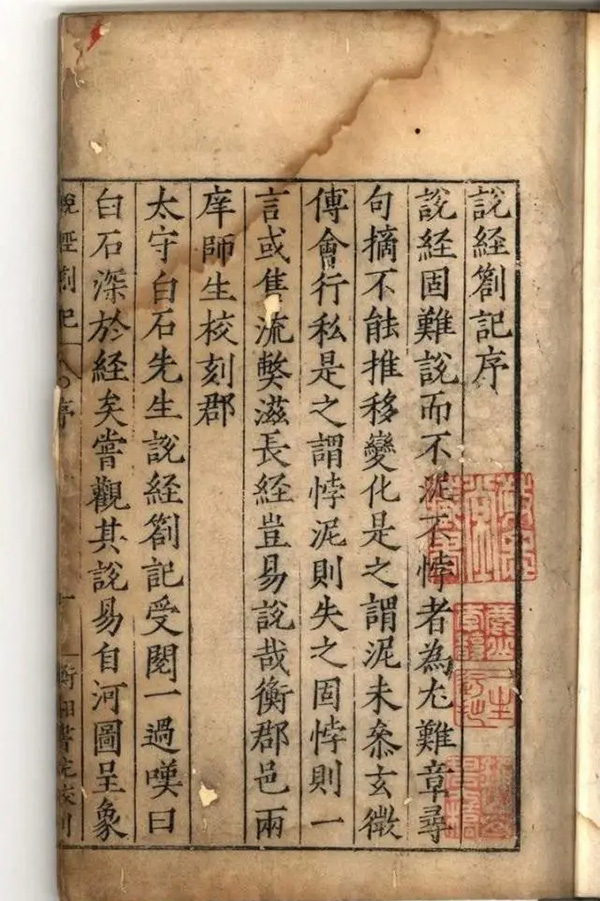 說經劄記序
說經固難說而不泥不悖者為尢難章尋
句摘不能推移變化是之謂泥未叅玄微
傅會行私是之謂悖泥則失之固悖則一
言或售流獘滋長經豈易說哉衡郡邑兩
庠師生校刻郡
太守白石先生說經劄記受閱一過嘆曰
白石深於經矣嘗觀其說易自河圖呈象
說經劄記 序 一